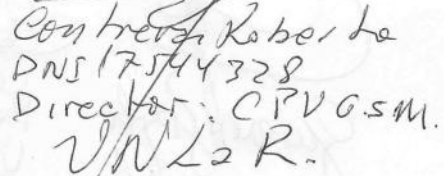 Contreras Roberto
DNI 17544328
Director: CPV G.S.M.
UNLaR.